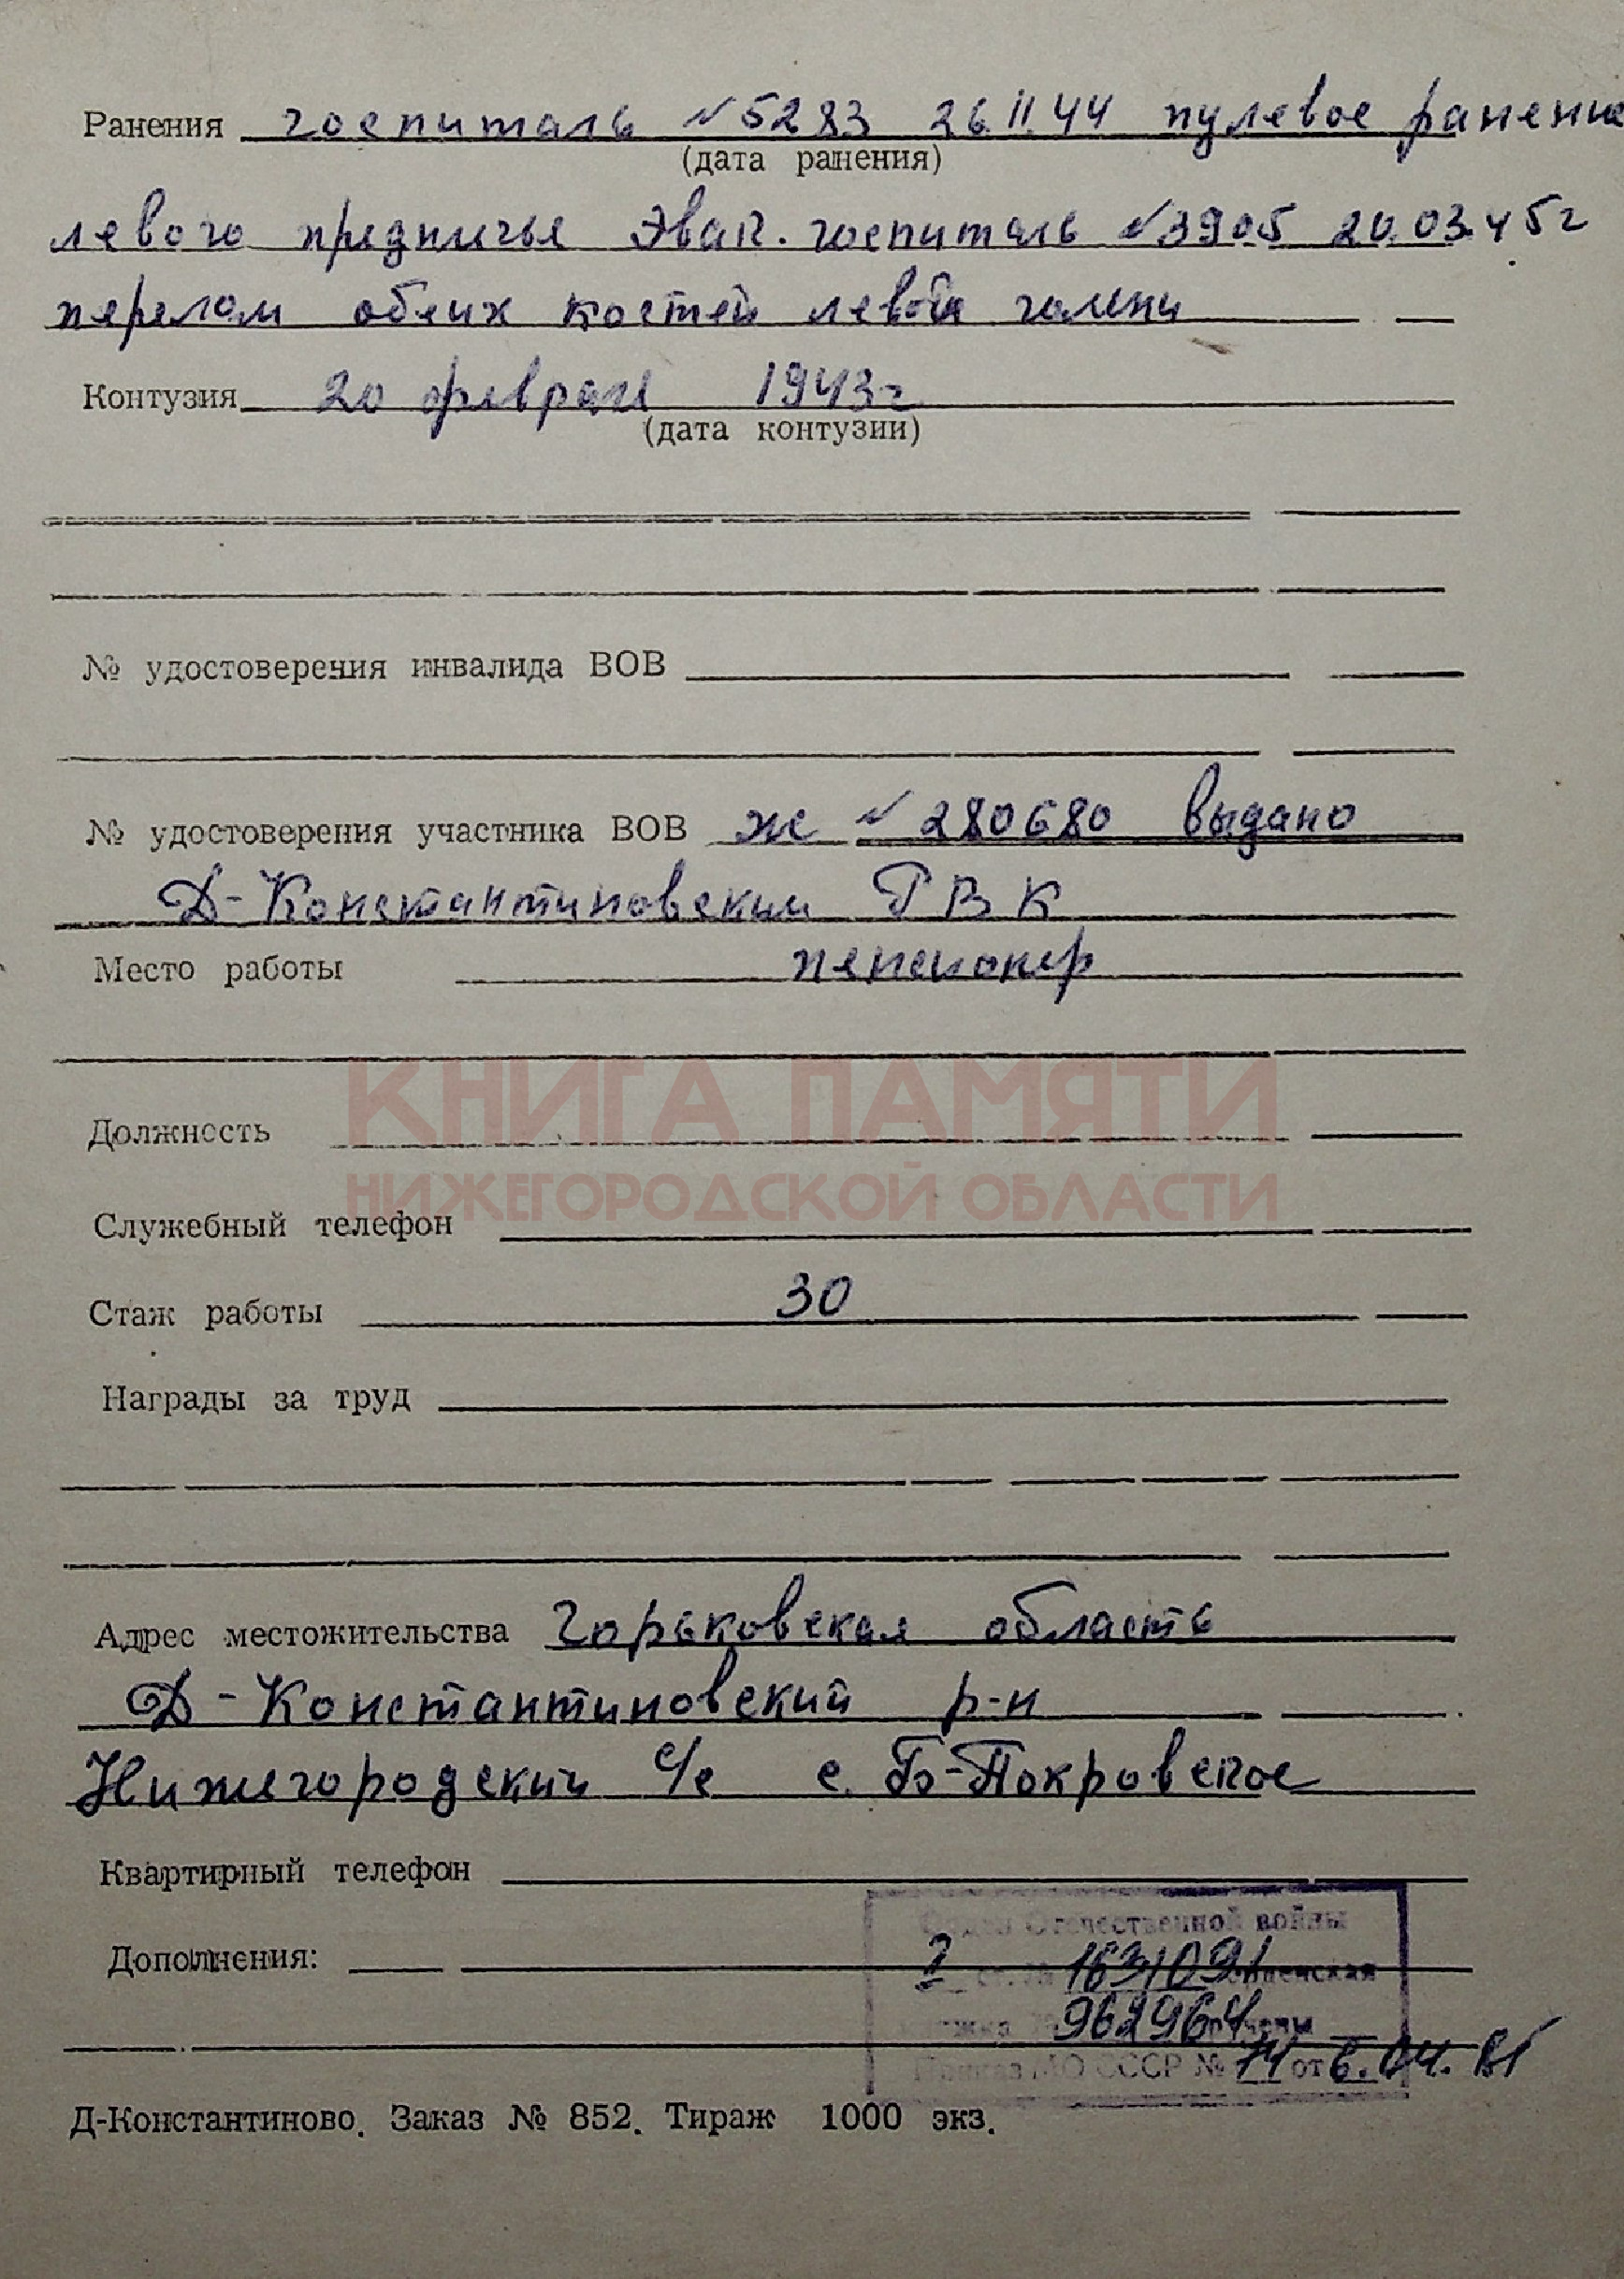 Ранения госпиталь №5283 26.II.44 пулевое ранение
(дата ранения)
левого предплечье Эвак. госпиталь №3905 20.03.45г
перелом обеих костей левой голени
Контузия 20 февраля 1943г
(дата контузии)
№ удостоверения инвалида ВОВ
№ удостоверения участника ВОВ Ж № 280680 выдано
Д-Константиновским РВК
Место работы пенсионер
КНИГА ПАМЯТИ
Должность
НИЖЕГОРОДСКОЙ ОБЛАСТИ
Служебный телефон
Стаж работы 30
Награды за труд
Адрес местожительства Горьковская область
Д-Константиновский р-н
Нижегородский с/с с. Б-Покровское
Квартирный телефон
Отечественной войны
Дополнения: 1631091
962964
Приказ МО СССР № 74 от 6.04.
Д-Константиново. Заказ № 852. Тираж 1000 экз.